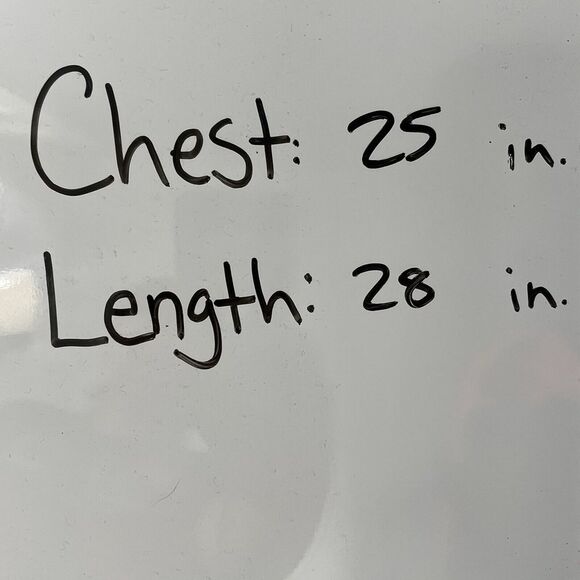 Chest: 25 in.
Length: 28 in.